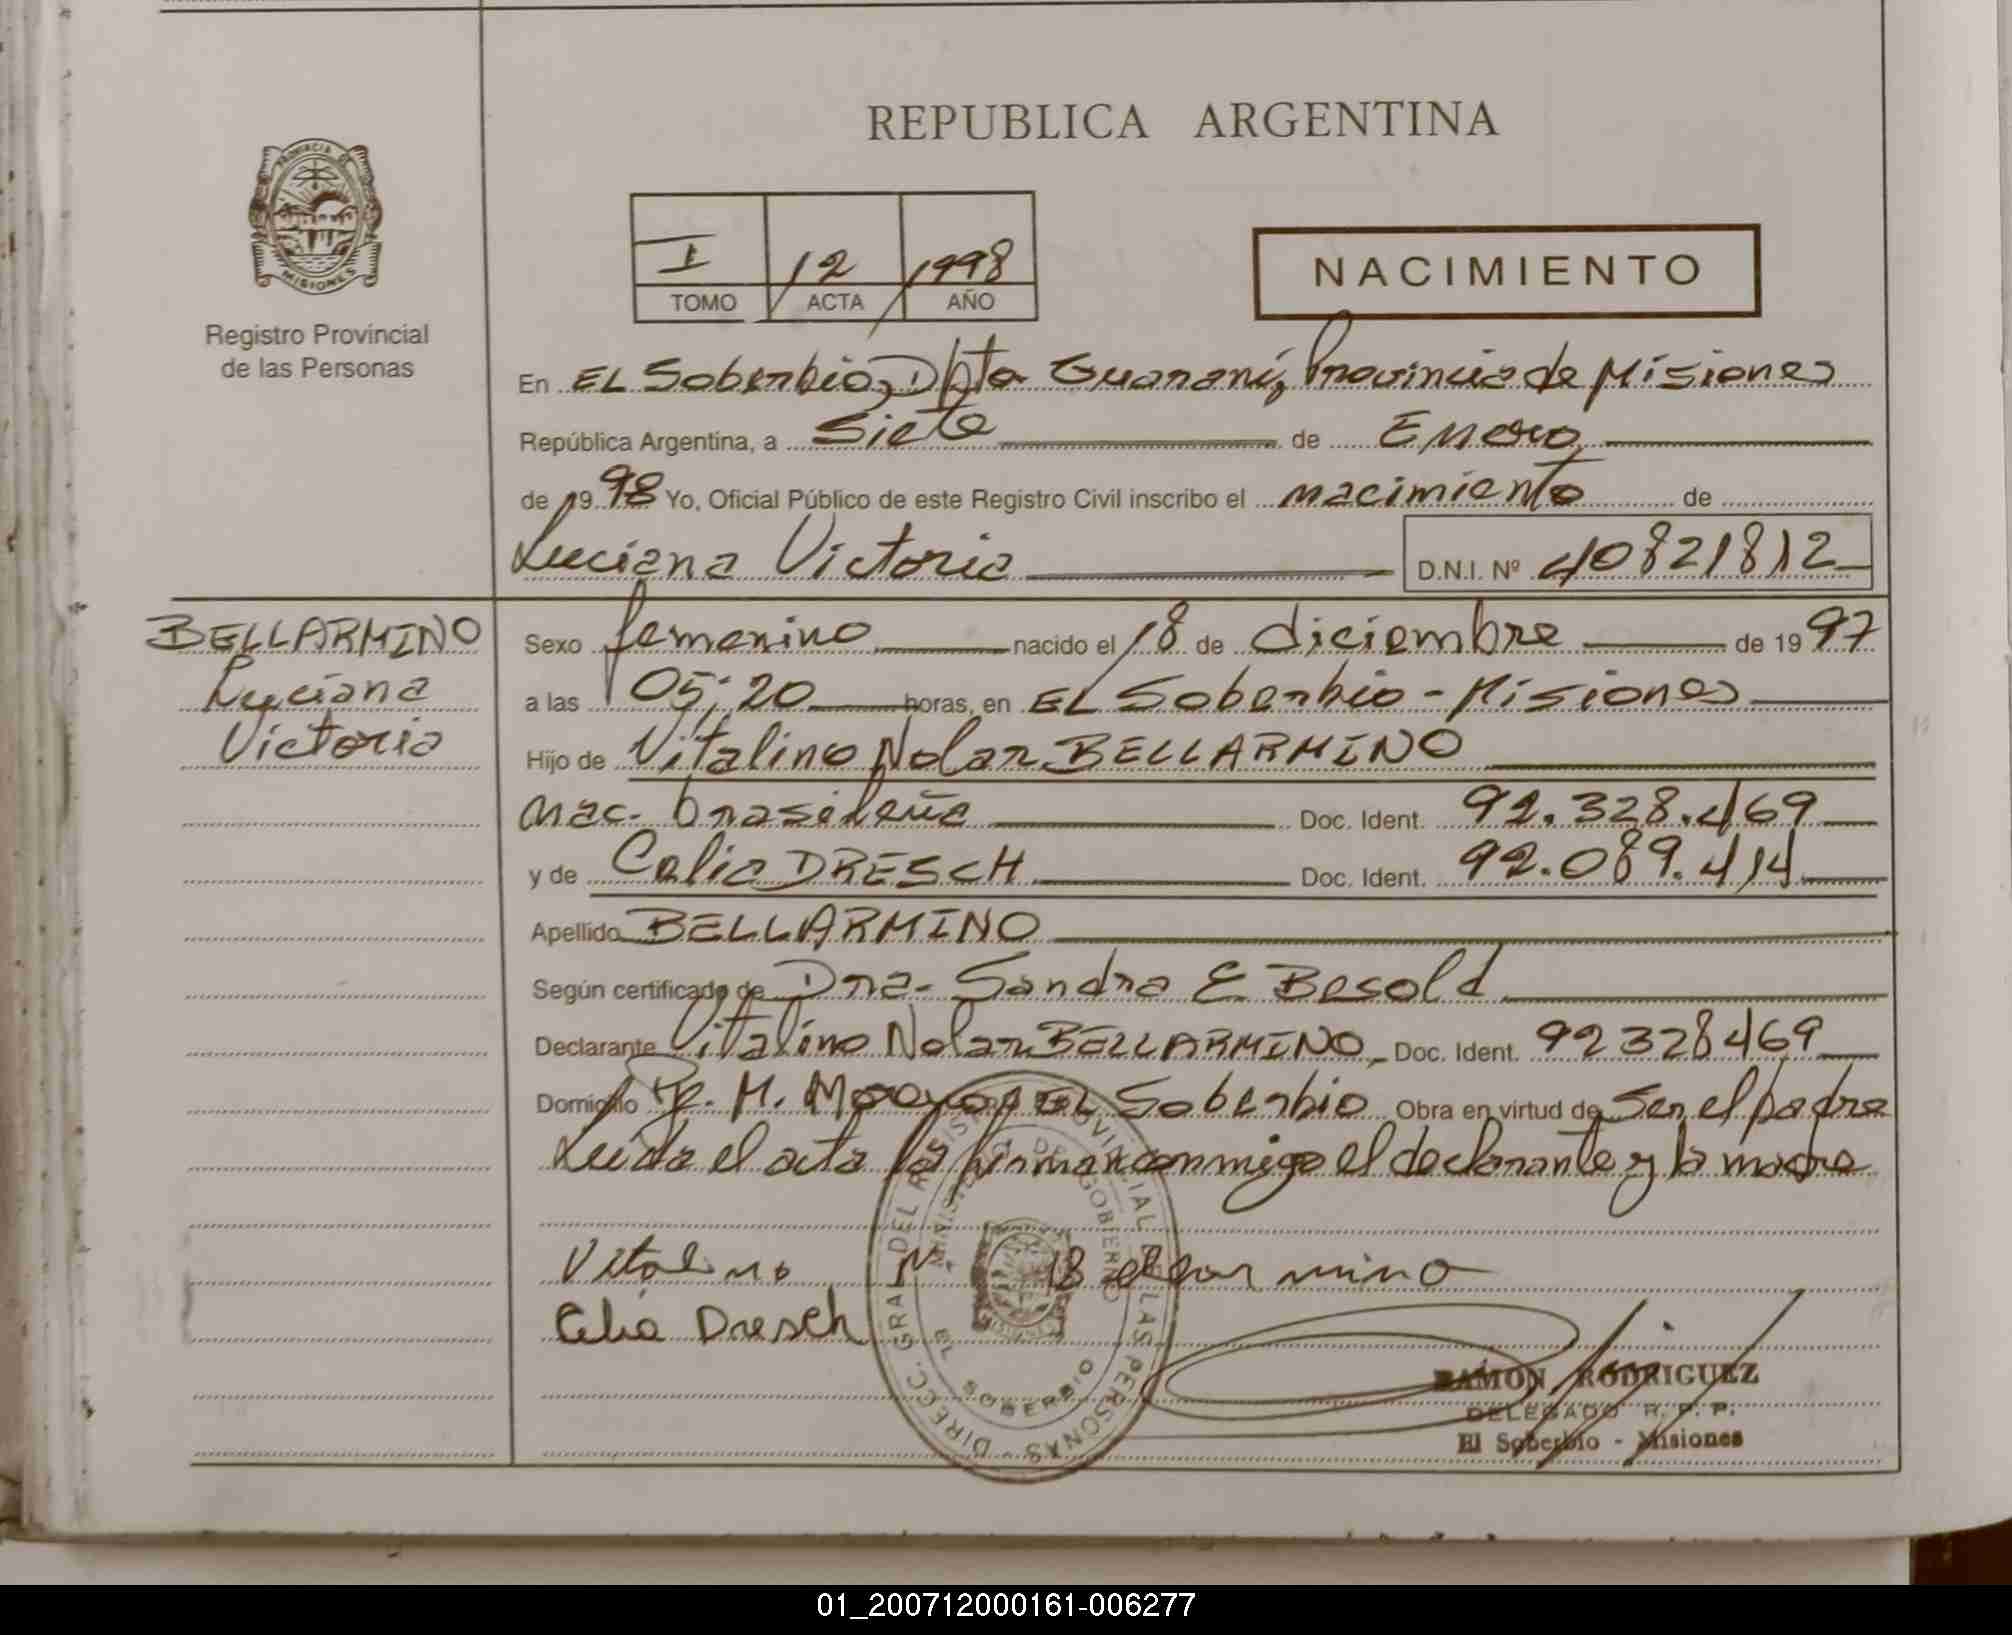 REPUBLICA ARGENTINA
PROVINCIA DE
MISIONES
Registro Provincial
de las Personas
I 12 1998
TOMO ACTA AÑO
NACIMIENTO
En EL Soberbio, Dpto Guaraní, Provincia de Misiones
República Argentina, a Siete de Enero
de 1998 Yo, Oficial Público de este Registro Civil inscribo el nacimiento de
Luciana Victoria D.N.I. Nº 40821812
BELLARMINO
Luciana
Victoria
Sexo femenino nacido el 18 de diciembre de 1997
a las 05:20 horas, en EL Soberbio - Misiones
Hijo de Vitalino Nolar BELLARMINO
nac. brasileña Doc. Ident. 92.328.469
y de Celia DRESCH Doc. Ident. 92.089.414
Apellido BELLARMINO
Según certificado de Dra. Sandra E Besold
Declarante Vitalino Nolar BELLARMINO, Doc. Ident. 92328469
Domicilio M. EL Soberbio Obra en virtud de Ser el padre
Leida el acta la firman conmigo el declarante y la madre
Vitalino N Bellarmino
Celia Dresch
DIRECC. GRAL DEL REGISTRO PROVINCIAL DE LAS PERSONAS
MINISTERIO DE GOBIERNO
EL SOBERBIO
RAMON RODRIGUEZ
DELEGADO R. P. P.
El Soberbio - Misiones
01_200712000161-006277